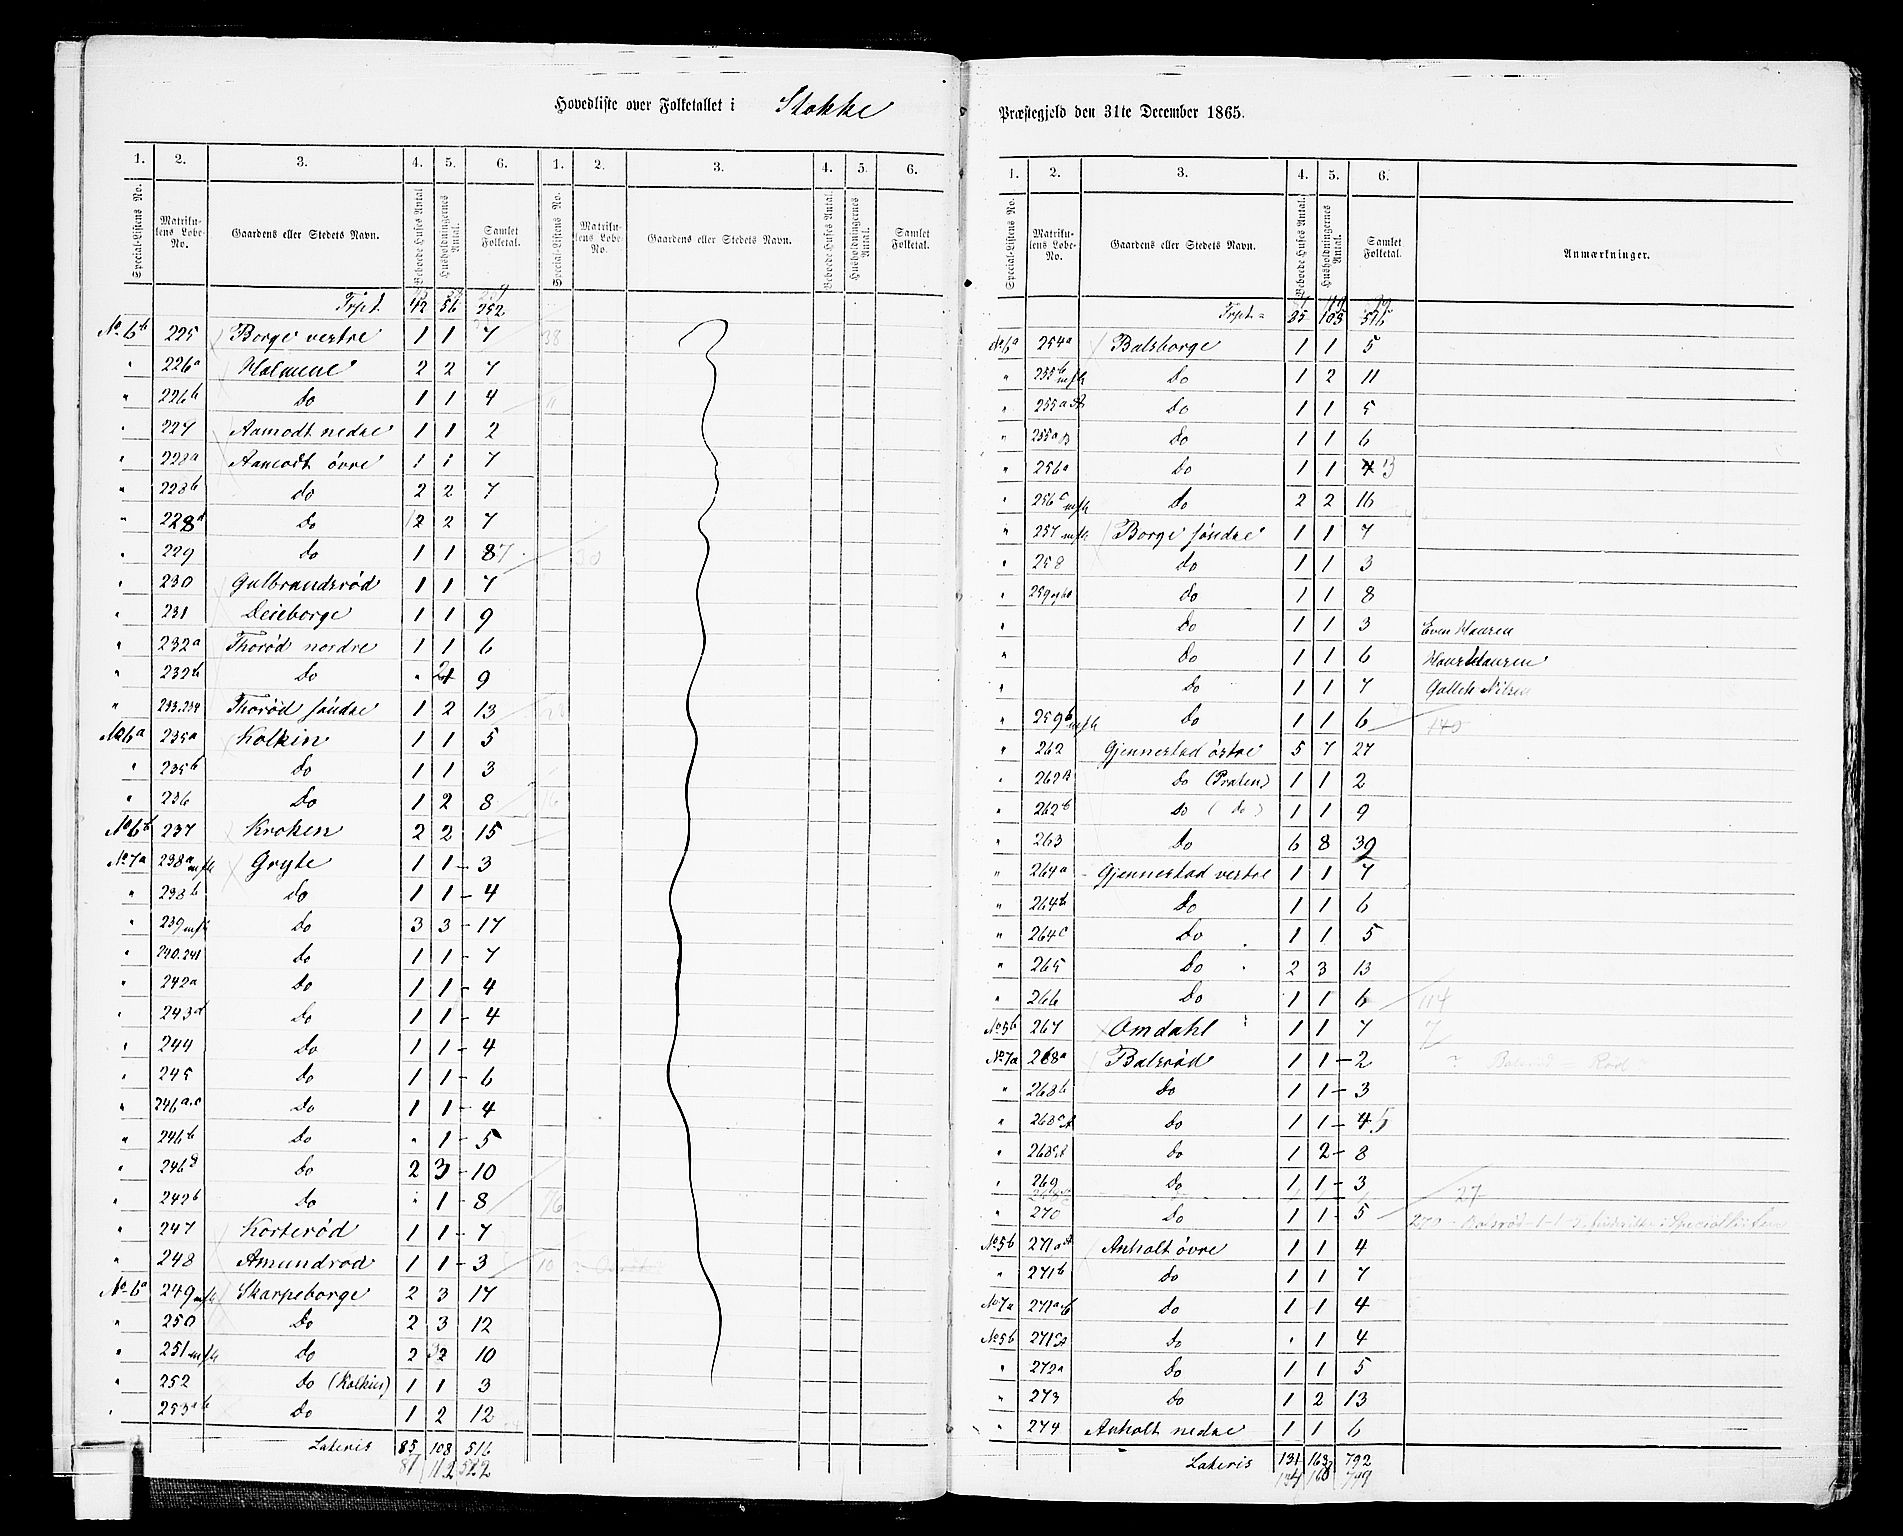 Hovedliste over Folketallet i Stokke
1. 2. 3. 4. 5. 6. 1. 2. 3. 4. 5. 6.
Special-Listens No. Matrikulens Løbe-No. Gaardens eller Stedets Navn. Beboede Huses Antal. Husholdningernes Antal. Samlet Folketal. Special-Listens No. Matrikulens Løbe-No. Gaardens eller Stedets Navn. Beboede Huses Antal. Husholdningernes Antal. Samlet Folketal.
Trpt. 42 56 252
No 6b 225 Borge vestre 1 1 7 38
" 226a Holmene 2 2 7
" 226b Do 1 1 4 11
" 227 Aamodt nedre 1 1 2
" 228a Aamodt øvre 1 1 7
" 228b do 2 2 7
" 228d Do 2 2 7
" 229 Do 1 1 87 30
" 230 Gulbrandsrød 1 1 7
" 231 Deieborge 1 1 9
" 232a Thorød nordre 1 1 6
" 232b Do " 2 9
" 233.234 Thorød søndre 1 2 13
No 6a 235a Kolkin 1 1 5
" 235b Do 1 1 3
" 236 Do 1 2 8 16
No 6b 237 Krohen 2 2 15
No 7a 238a mfl Gryte 1 1 - 3
" 238b Do 1 1 - 4
" 239 mfl Do 3 3 - 17
" 240.241 Do 1 1 - 7
" 242a Do 1 1 - 4
" 243d Do 1 1 - 4
" 244 Do 1 1 - 4
" 245 Do 1 1 - 6
" 246a.c Do 1 1 - 4
" 246b Do " 1 - 5
" 246d Do 2 3 - 10
" 242b Do " 1 - 8 76
" 247 Korterød 1 1 - 7
" 248 Amundrød 1 1 - 3 10
No 6a 249 mfl Skarpeborge 2 3 17
" 250 Do 2 3 12
" 251 mfl Do 2 32 10
" 252 Do (Kolkin) 1 1 3
" 253a b Do 1 2 12
Lateris 85 108 516
87 112 522
Præstegjeld den 31te December 1865.
1. 2. 3. 4. 5. 6.
Special-Listens No. Matrikulens Løbe-No. Gaardens eller Stedets Navn. Beboede Huses Antal. Husholdningernes Antal. Samlet Folketal. Anmærkninger.
Trpt. 85 108 516
No 6a 254a Balsborge 1 1 5
" 255b mfl Do 1 2 11
" 255a A Do 1 1 5
" 255a B Do 1 1 6
" 256a Do 1 1 4 3
" 256c mfl Do 2 2 16
" 257 mfl Borge søndre 1 1 7
" 258 Do 1 1 3
" 259 do 1 1 8
" Do 1 1 3 Even Hansen
" Do 1 1 6 Hans Hansen
" Do 1 1 7 Nilsen
" 259b mfl Do 1 1 6 140
" 262 Gjennestad østre 5 7 27
" 262A Do (Pralen) 1 1 2
" 262b Do (Do) 1 1 9
" 263 Do 6 8 39
" 264a Gjennestad vestre 1 1 7
" 264b Do 1 1 6
" 264c Do 1 1 5
" 265 Do 2 3 13
" 266 Do 1 1 6 114
No 5b 267 Omdahl 1 1 7 7
No 7a 268a Balsrød 1 1 - 2 ? Balsrød - Rød
" 268b Do 1 1 - 3
" 268c A Do 1 1 - 4 5
" 268 Do 1 2 - 8
" 269 Do 1 1 - 3
270 Do 1 1 - 5 27
270 - Balsrød - 1 - 1 - 5
No 5b 271a A Anholt øvre 1 1 4
" 271b Do 1 1 7
No 7a 271a Do 1 1 4
No 5b 271 Do " 1 4
" 272a Do 1 1 5
" 273 Do 1 2 13
" 274 Anholt nedre 1 1 6
Lateris 131 163 792
134 168 799